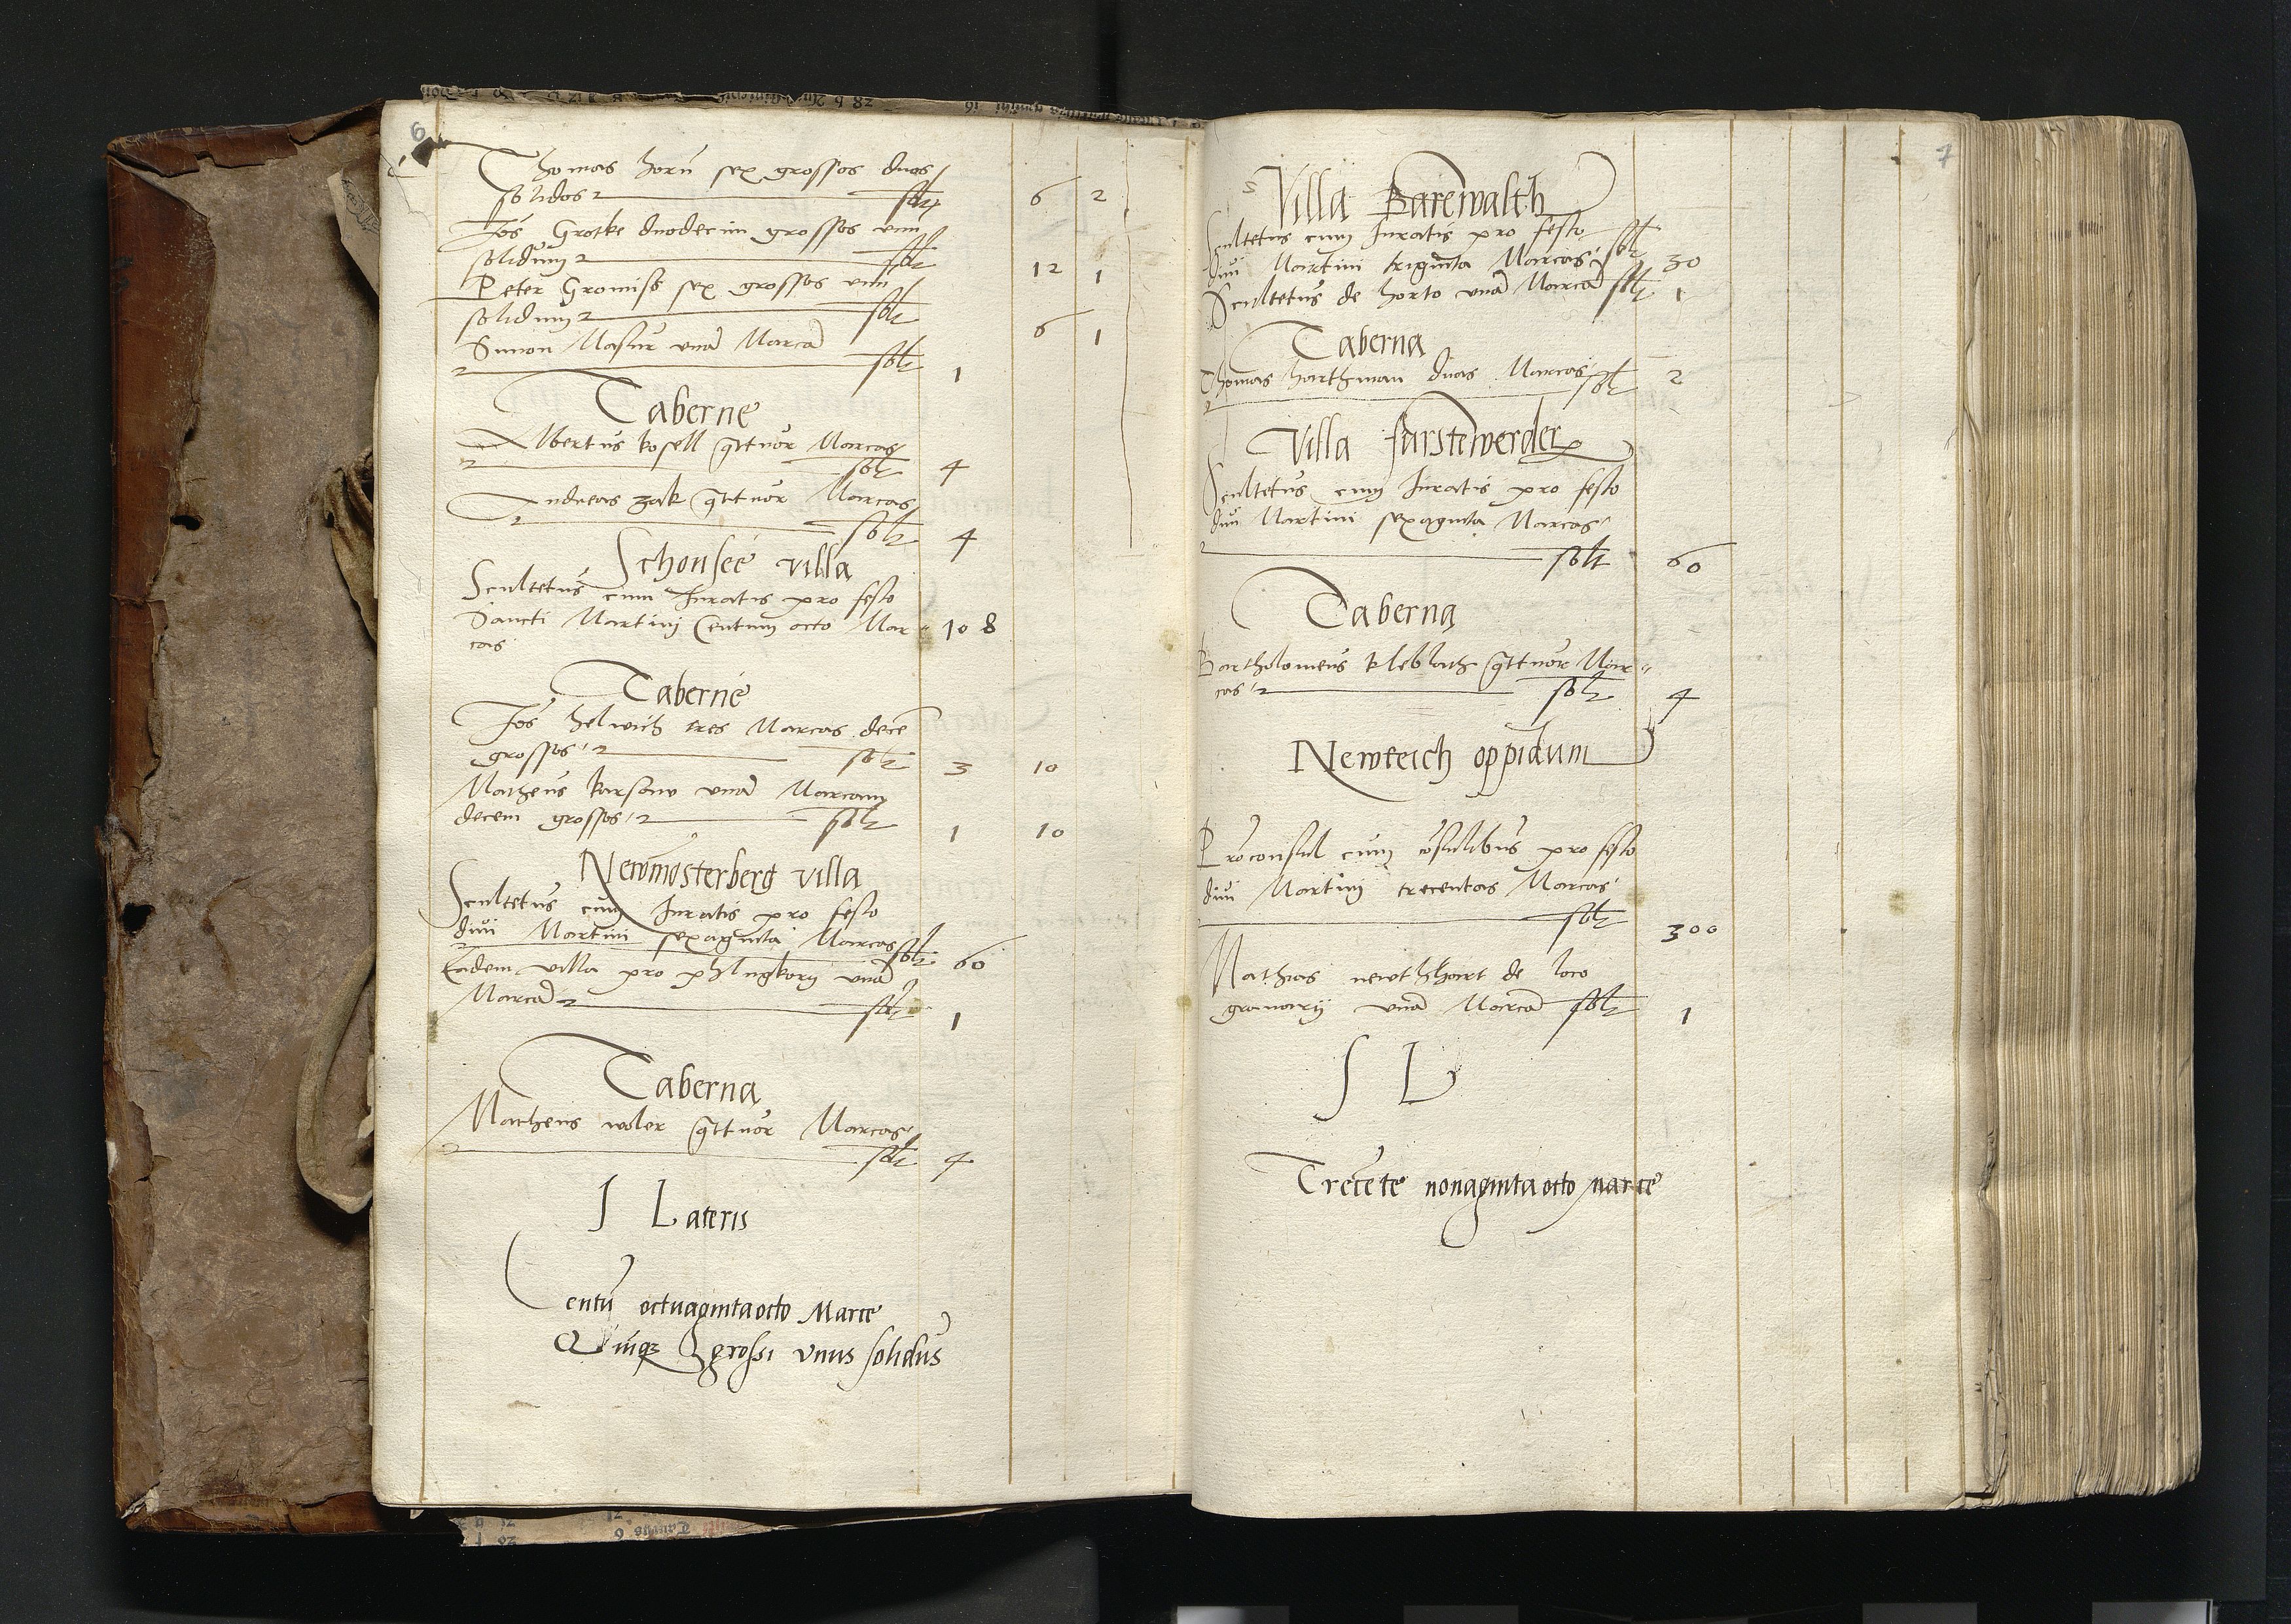 6
Thomas horn sex grossos duos
solidos solt 6 2
Jos Grotke duodecim grossos unu
solidum solt 12 1
Peter Gromiss sex grossos unu
solidum solt 6 1
Simon Masur una Marca
solt 1
Taberne
Albertus kosell qttuor Marcas
solt 4
Andreas zak qttuor Marcas
solt 4
Schonsee villa
Scultetus cum Juratis pro festo
Sancti Martinj Centum octo Mar
cas 108
Taberne
Jos helwich tres Marcas dece
grossos solt 3 10
Matheus karsaw una Marcam
decem grossos solt 1 10
Newmosterberg villa
Scultetus cum Juratis pro festo
divi Martini sexaginta Marcas solt 60
Eadem villa pro una
Marca solt 1
Taberna
Matheus woler qttuor Marcas
solt 4
S Lateris
Centu octuagintaocto Marce
Quinqz grossi unus solidus
7
Villa Barewalth
Scultetus cum Juratis pro festo
divi Martini triginta Marcas solt 30
Scultetus de horto una Marca solt 1
Taberna
Thomas harthman duas Marcas
solt 2
Villa furstewerder
Scultetus cum Juratis pro festo
divi Martini sexaginta Marcas
solt 60
Taberna
Bartholomeus kleblath qttuor Mar
cas solt 4
Newteich oppidum
Proconsul cum cosulibus pro festo
divi Martinj trecentas Marcas
solt 300
Mathias de loco
granarij una Marca solt 1
S L
Trecete nonagintaocto marce